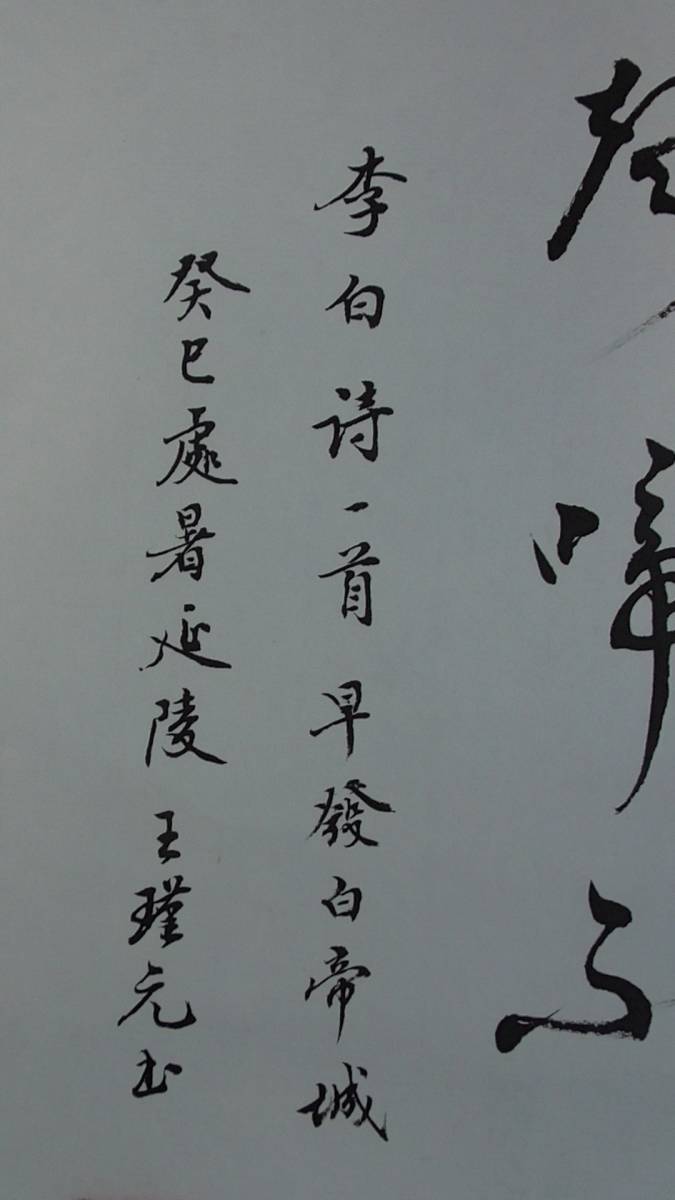 啼不
李白诗一首早發白帝城
癸巳處暑延陵王瑾元书